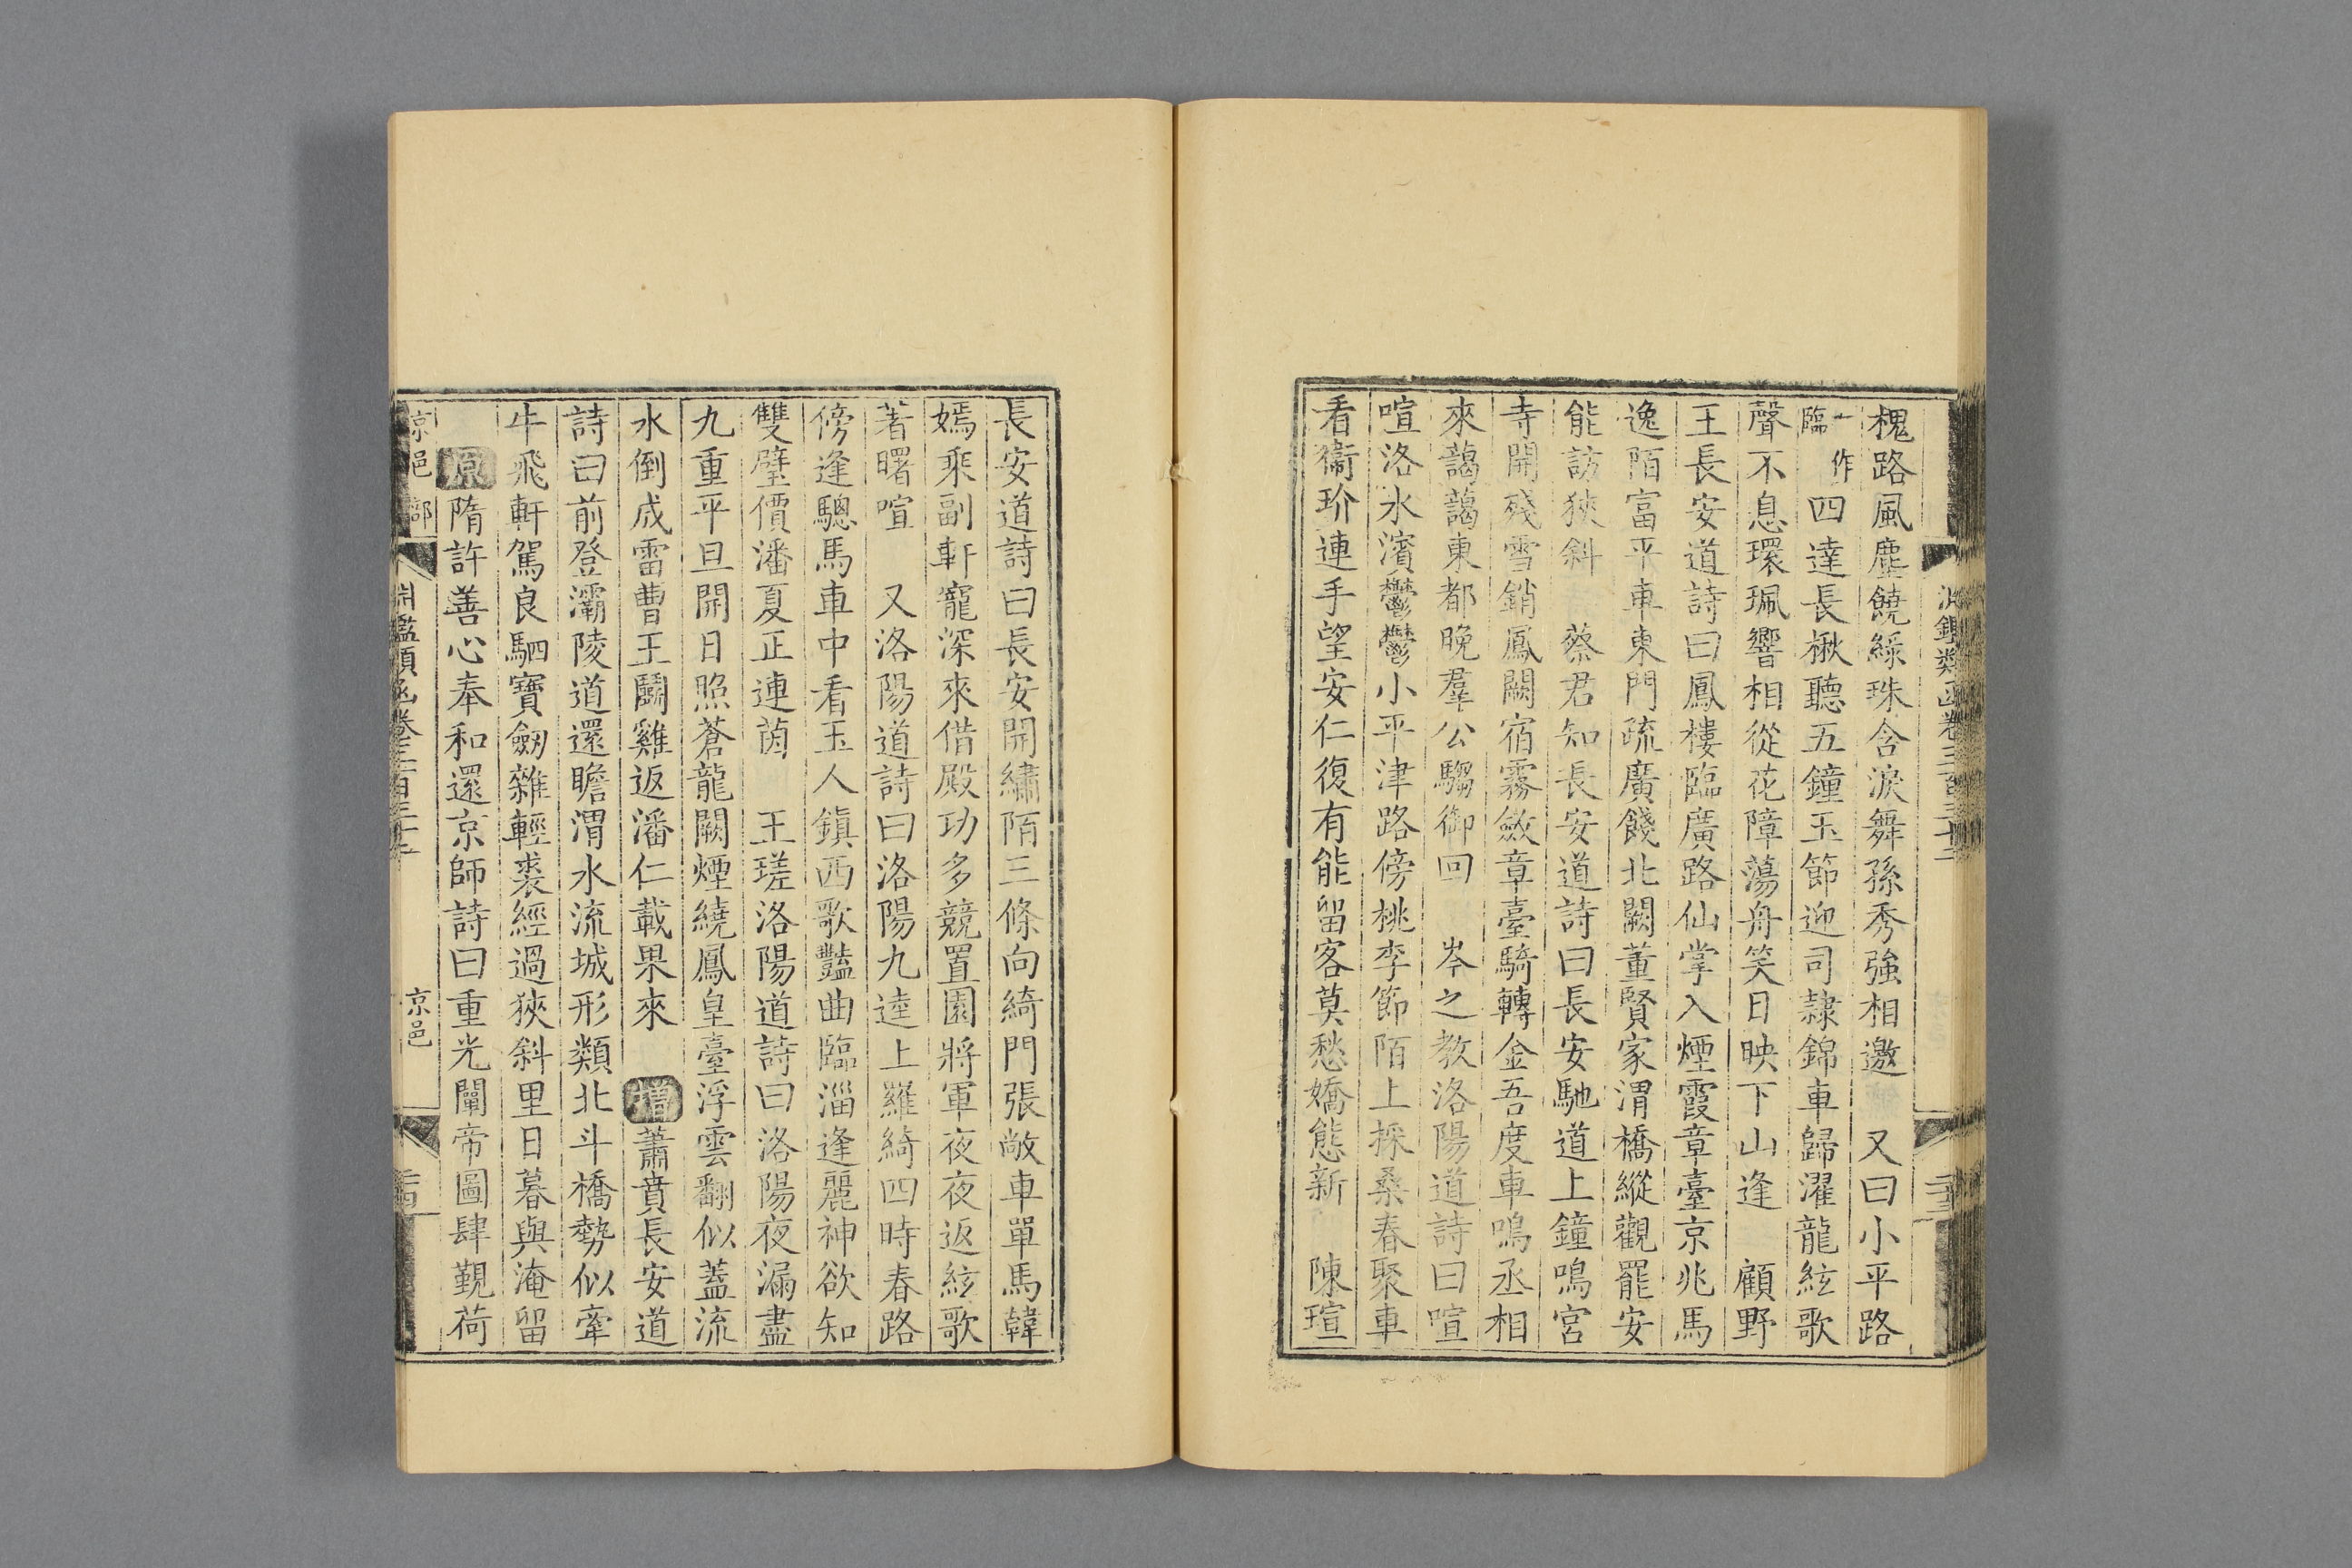 槐路風塵饒綠珠含淚舞孫秀強相邀　又曰小平路
臨一作四達長楸聽五鐘玉節迎司隷錦車歸濯龍絃歌
聲不息環珮響相從花障蕩舟笑日映下山逢　顧野
王長安道詩曰鳳樓臨廣路仙掌入煙霞章臺京兆馬
逸陌富平車東門疏廣餞北闕董賢家渭橋縱觀罷安
能訪狹斜　蔡君知長安道詩曰長安馳道上鐘鳴宮
寺開殘雪銷鳳闕宿霧斂章臺騎轉金吾度車鳴丞相
來藹藹東都晚羣公騶御回　岑之敬洛陽道詩曰喧
喧洛水濱鬱鬱小平津路傍桃李節陌上採桑春聚車
看衞玠連手望安仁復有能留客莫愁嬌態新　陳瑄
長安道詩曰長安開繡陌三條向綺門張敞車單馬韓
嫣乘副軒寵深來借殿功多競置園將軍夜夜返絃歌
著曙喧　又洛陽道詩曰洛陽九逵上羅綺四時春路
傍逢驄馬車中看玉人鎮西歌豔曲臨淄逢麗神欲知
雙璧價潘夏正連茵　王瑳洛陽道詩曰洛陽夜漏盡
九重平旦開日照蒼龍闕煙繞鳳皇臺浮雲翻似蓋流
水倒成雷曹王鬭雞返潘仁載果來　增蕭賁長安道
詩曰前登灞陵道還瞻渭水流城形類北斗橋勢似牽
牛飛軒駕良駟寶劒雜輕裘經過狹斜里日暮與淹留
原隋許善心奉和還京師詩曰重光闡帝圖肆覲荷
京邑部　淵鑑類函卷三百三十三　京邑　二十四